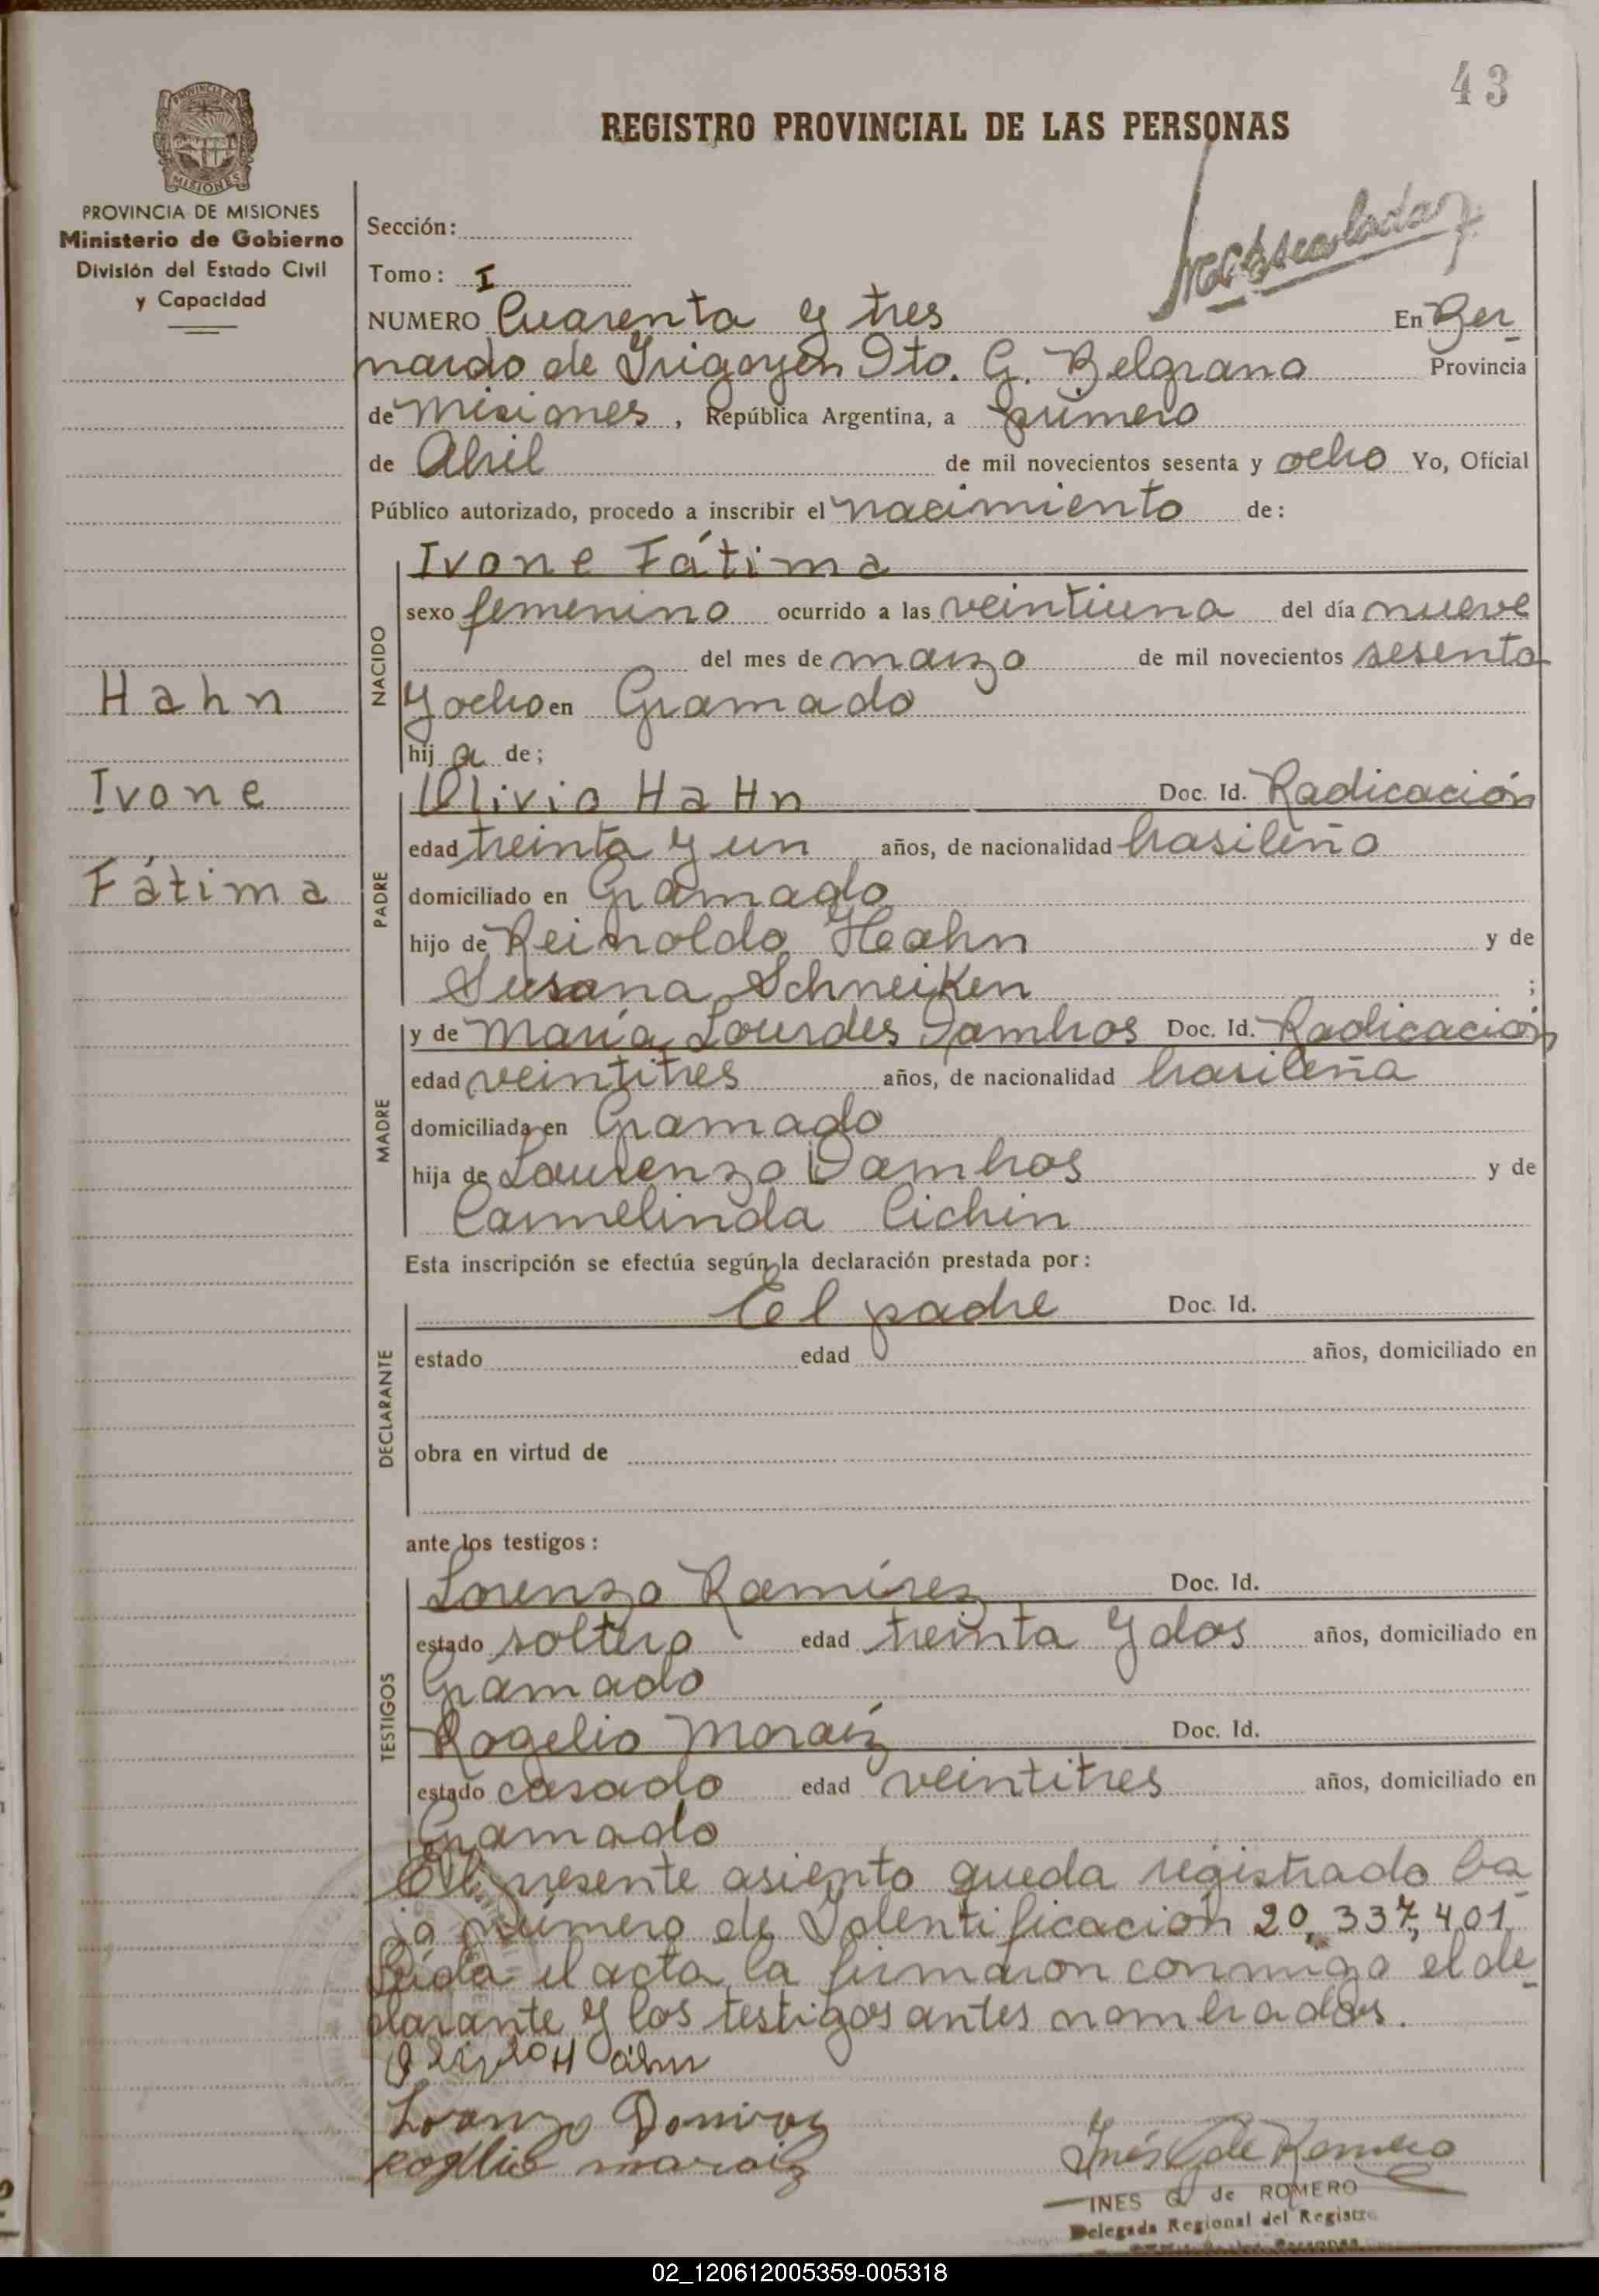 43
REGISTRO PROVINCIAL DE LAS PERSONAS
PROVINCIA DE MISIONES
Ministerio de Gobierno
División del Estado Civil
y Capacidad
Sección:
Tomo: I
NUMERO Cuarenta y tres En Ber
nardo de Irigoyen Dto. G. Belgrano Provincia
de Misiones, República Argentina, a primero
de Abril de mil novecientos sesenta y ocho Yo, Oficial
Público autorizado, procedo a inscribir el nacimiento de:
NACIDO
Ivone Fátima
sexo femenino ocurrido a las veintiuna del día nueve
del mes de marzo de mil novecientos sesenta
y ocho en Gramado
hija de;
Hahn
Ivone
Fátima
PADRE
Olivio Hahn Doc. Id. Radicación
edad treinta y un años, de nacionalidad brasileño
domiciliado en Gramado
hijo de Reinoldo Hahn y de
Susana Schneiken ;
MADRE
y de María Lourdes Dambros Doc. Id. Radicación
edad veintitres años, de nacionalidad brasileña
domiciliada en Gramado
hija de Laurenzo Dambros y de
Carmelinda Cichin
Esta inscripción se efectúa según la declaración prestada por:
DECLARANTE
El padre Doc. Id.
estado edad años, domiciliado en
obra en virtud de
ante los testigos:
TESTIGOS
Lorenzo Ramírez Doc. Id.
estado soltero edad treinta y dos años, domiciliado en
Gramado
Rogelio Moraiz Doc. Id.
estado casado edad veintitres años, domiciliado en
Gramado
El presente asiento queda registrado ba
jo número de Identificación 20,337,401
Leída el acta la firmaron conmigo el de
clarante y los testigos antes nombrados.
Olivio Hahn
Rogelio Moraiz
Inés G de Romero
INES G de ROMERO
Delegada Regional del Registro
02_120612005359-005318